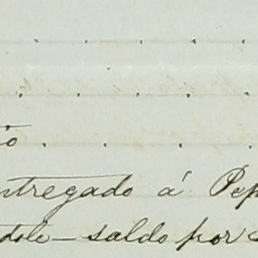 io . . . .
ntregado á Pep
dole – saldo por s